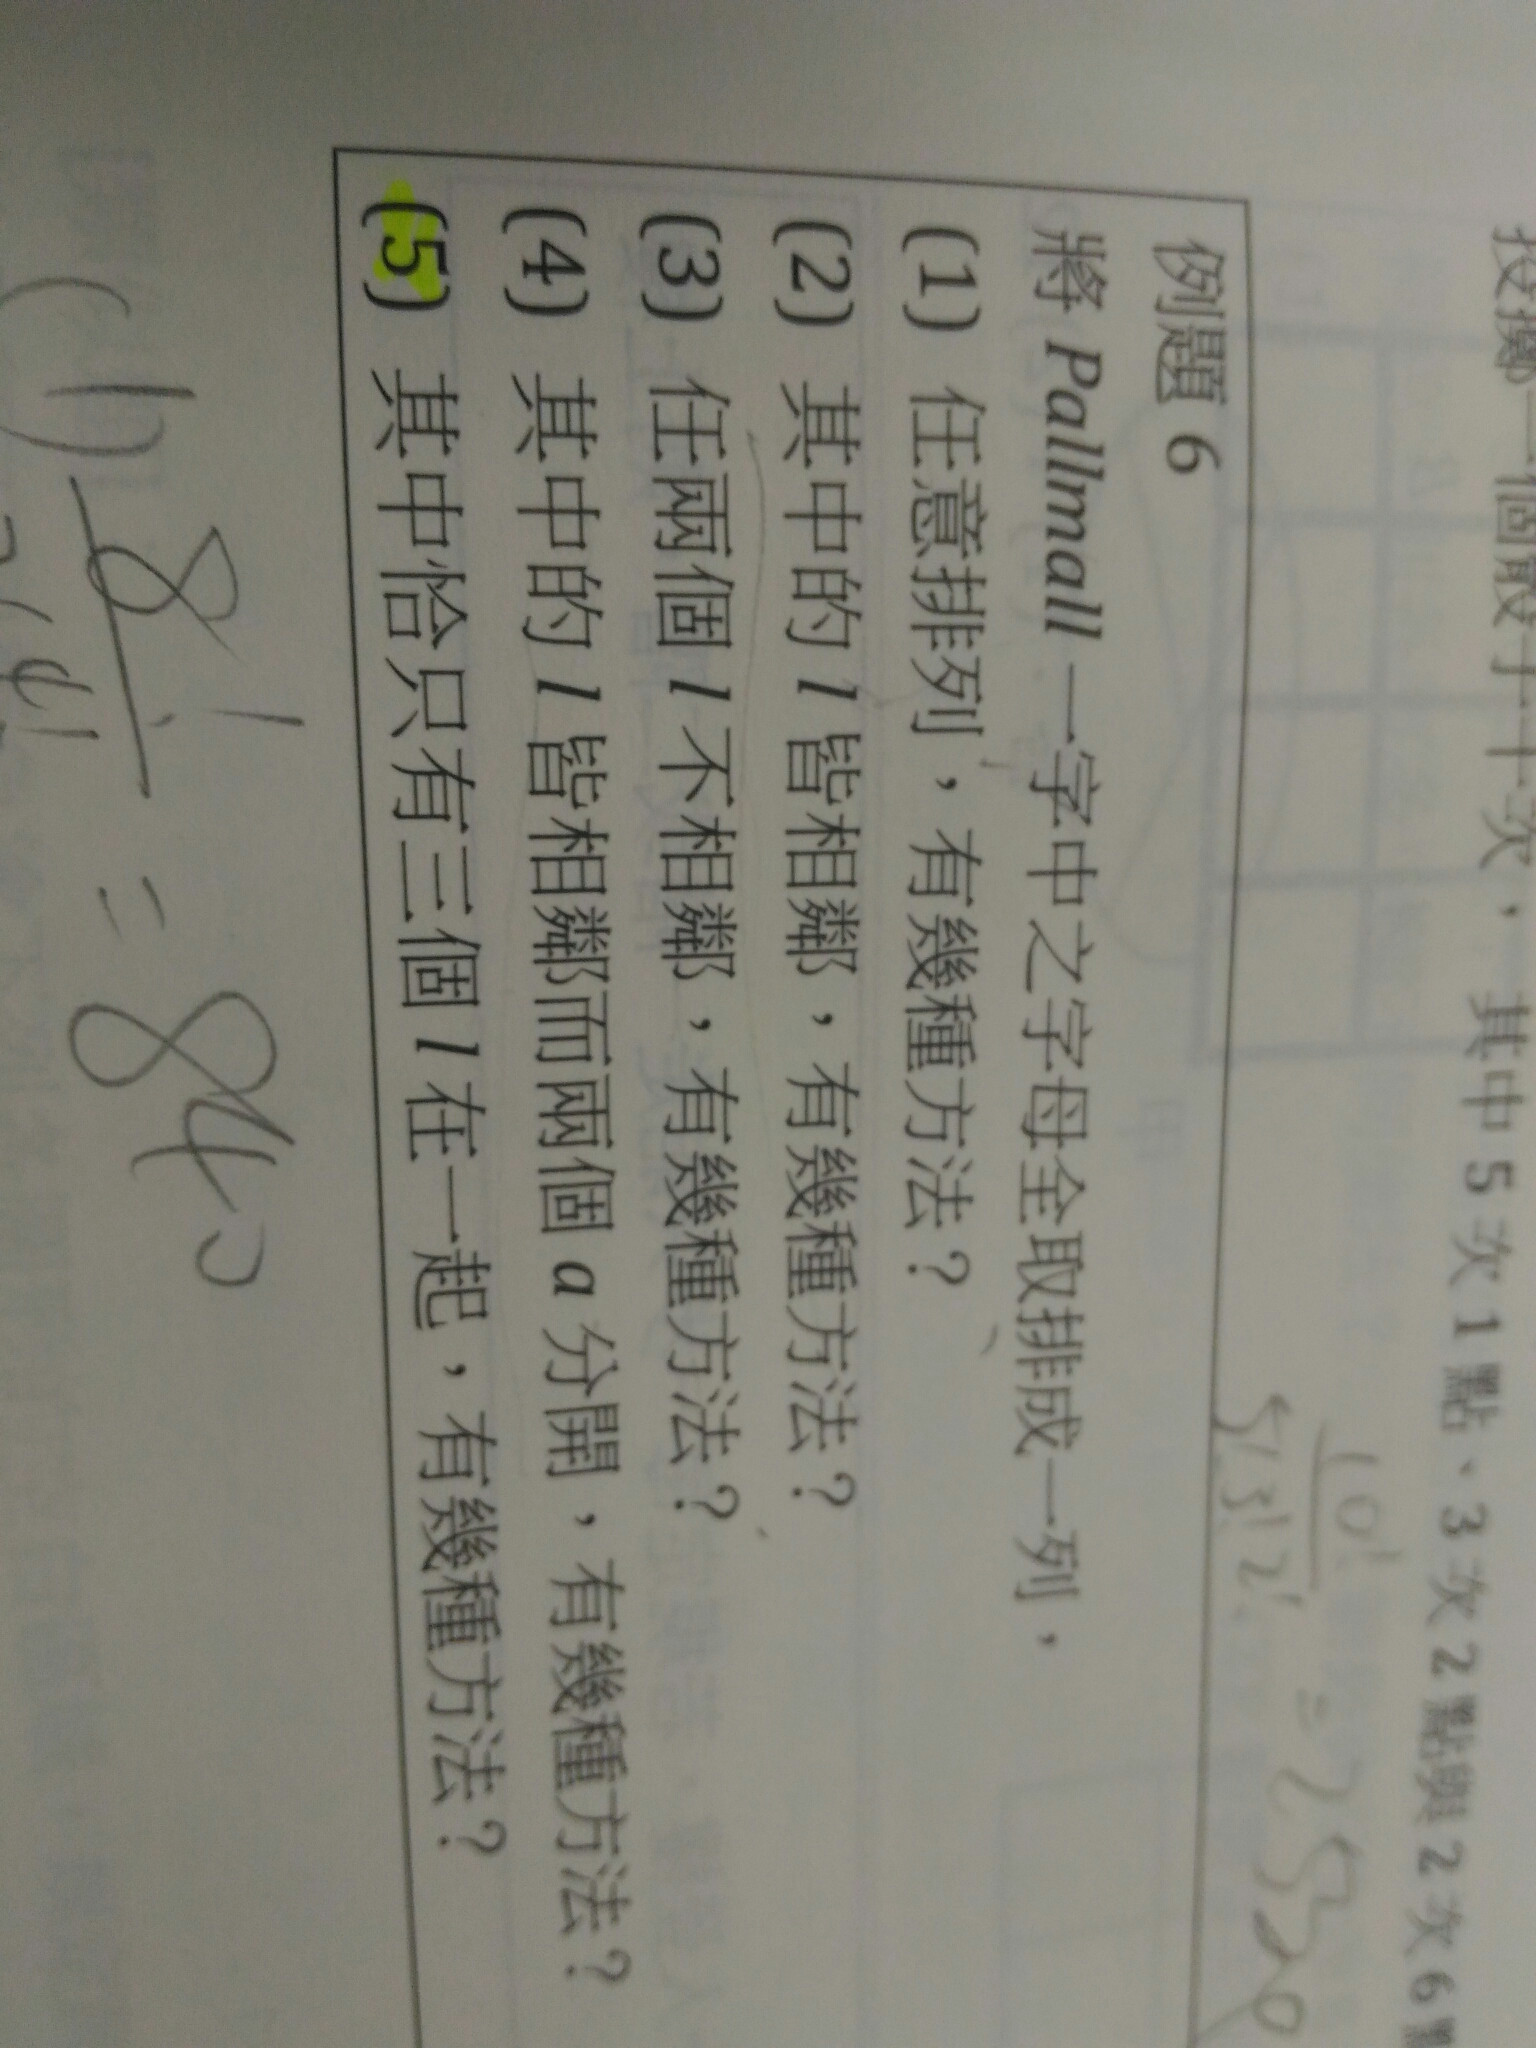 投擲一個骰子十次，其中 5 次 1 點、3 次 2 點與 2 次 6 點
10!
5!3!2! = 2520
例題 6
將 Pallmall 一字中之字母全取排成一列，
(1) 任意排列，有幾種方法？
(2) 其中的 l 皆相鄰，有幾種方法？
(3) 任兩個 l 不相鄰，有幾種方法？
(4) 其中的 l 皆相鄰而兩個 a 分開，有幾種方法？
(5) 其中恰只有三個 l 在一起，有幾種方法？
(1) 8! = 840
2!4!